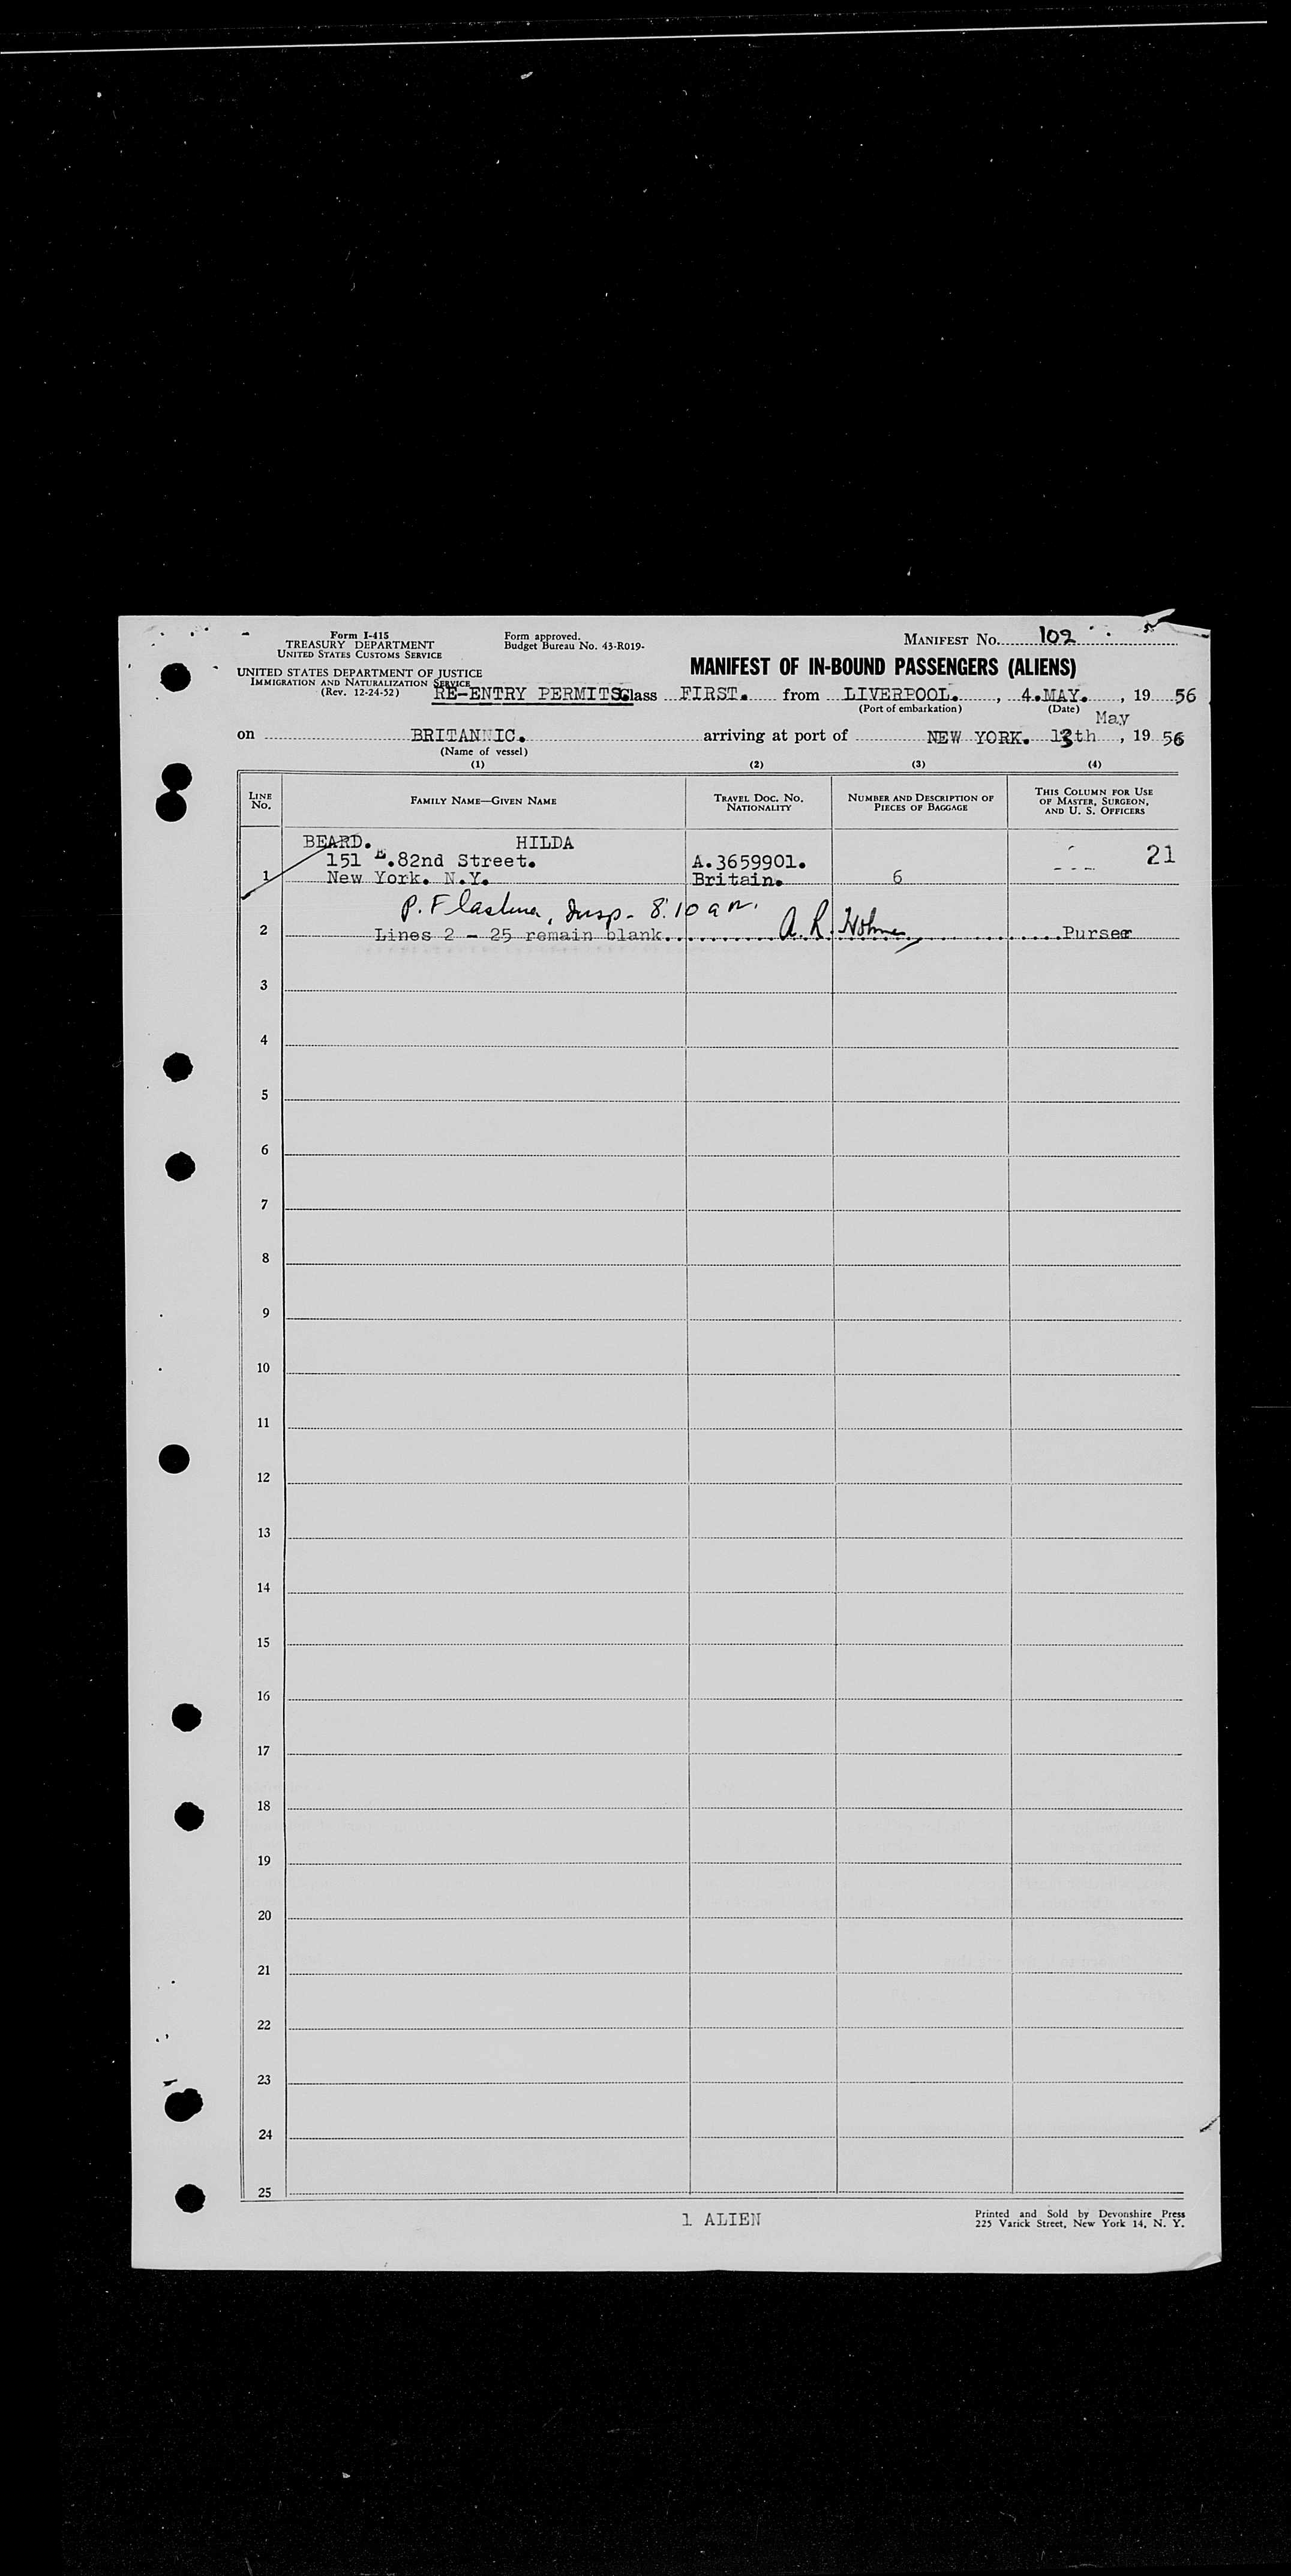 Form I-415
TREASURY DEPARTMENT
UNITED STATES CUSTOMS SERVICE
Form approved.
Budget Bureau No. 43-R019-
MANIFEST NO. 102
UNITED STATES DEPARTMENT OF JUSTICE
IMMIGRATION AND NATURALIZATION SERVICE
(Rev. 12-24-52)
MANIFEST OF IN-BOUND PASSENGERS (ALIENS)
RE-ENTRY PERMITS. Class FIRST. from LIVERPOOL. , 4.MAY. , 19 56
(Port of embarkation) (Date)
May
on BRITANNIC. arriving at port of NEW YORK. 13th , 19 56
(Name of vessel)
(1) (2) (3) (4)
LINE NO.
FAMILY NAME—GIVEN NAME
TRAVEL DOC. NO. NATIONALITY
NUMBER AND DESCRIPTION OF PIECES OF BAGGAGE
THIS COLUMN FOR USE OF MASTER, SURGEON, AND U. S. OFFICERS
BEARD. HILDA 21
151 E.82nd Street. A.3659901.
1 New York. N.Y. Britain. 6
Insp- 8:10 am.
2 Lines 2 - 25 remain blank. A. R. Purser
3
4
5
6
7
8
9
10
11
12
13
14
15
16
17
18
19
20
21
22
23
24
25
1 ALIEN
Printed and Sold by Devonshire Press
225 Varick Street, New York 14, N. Y.